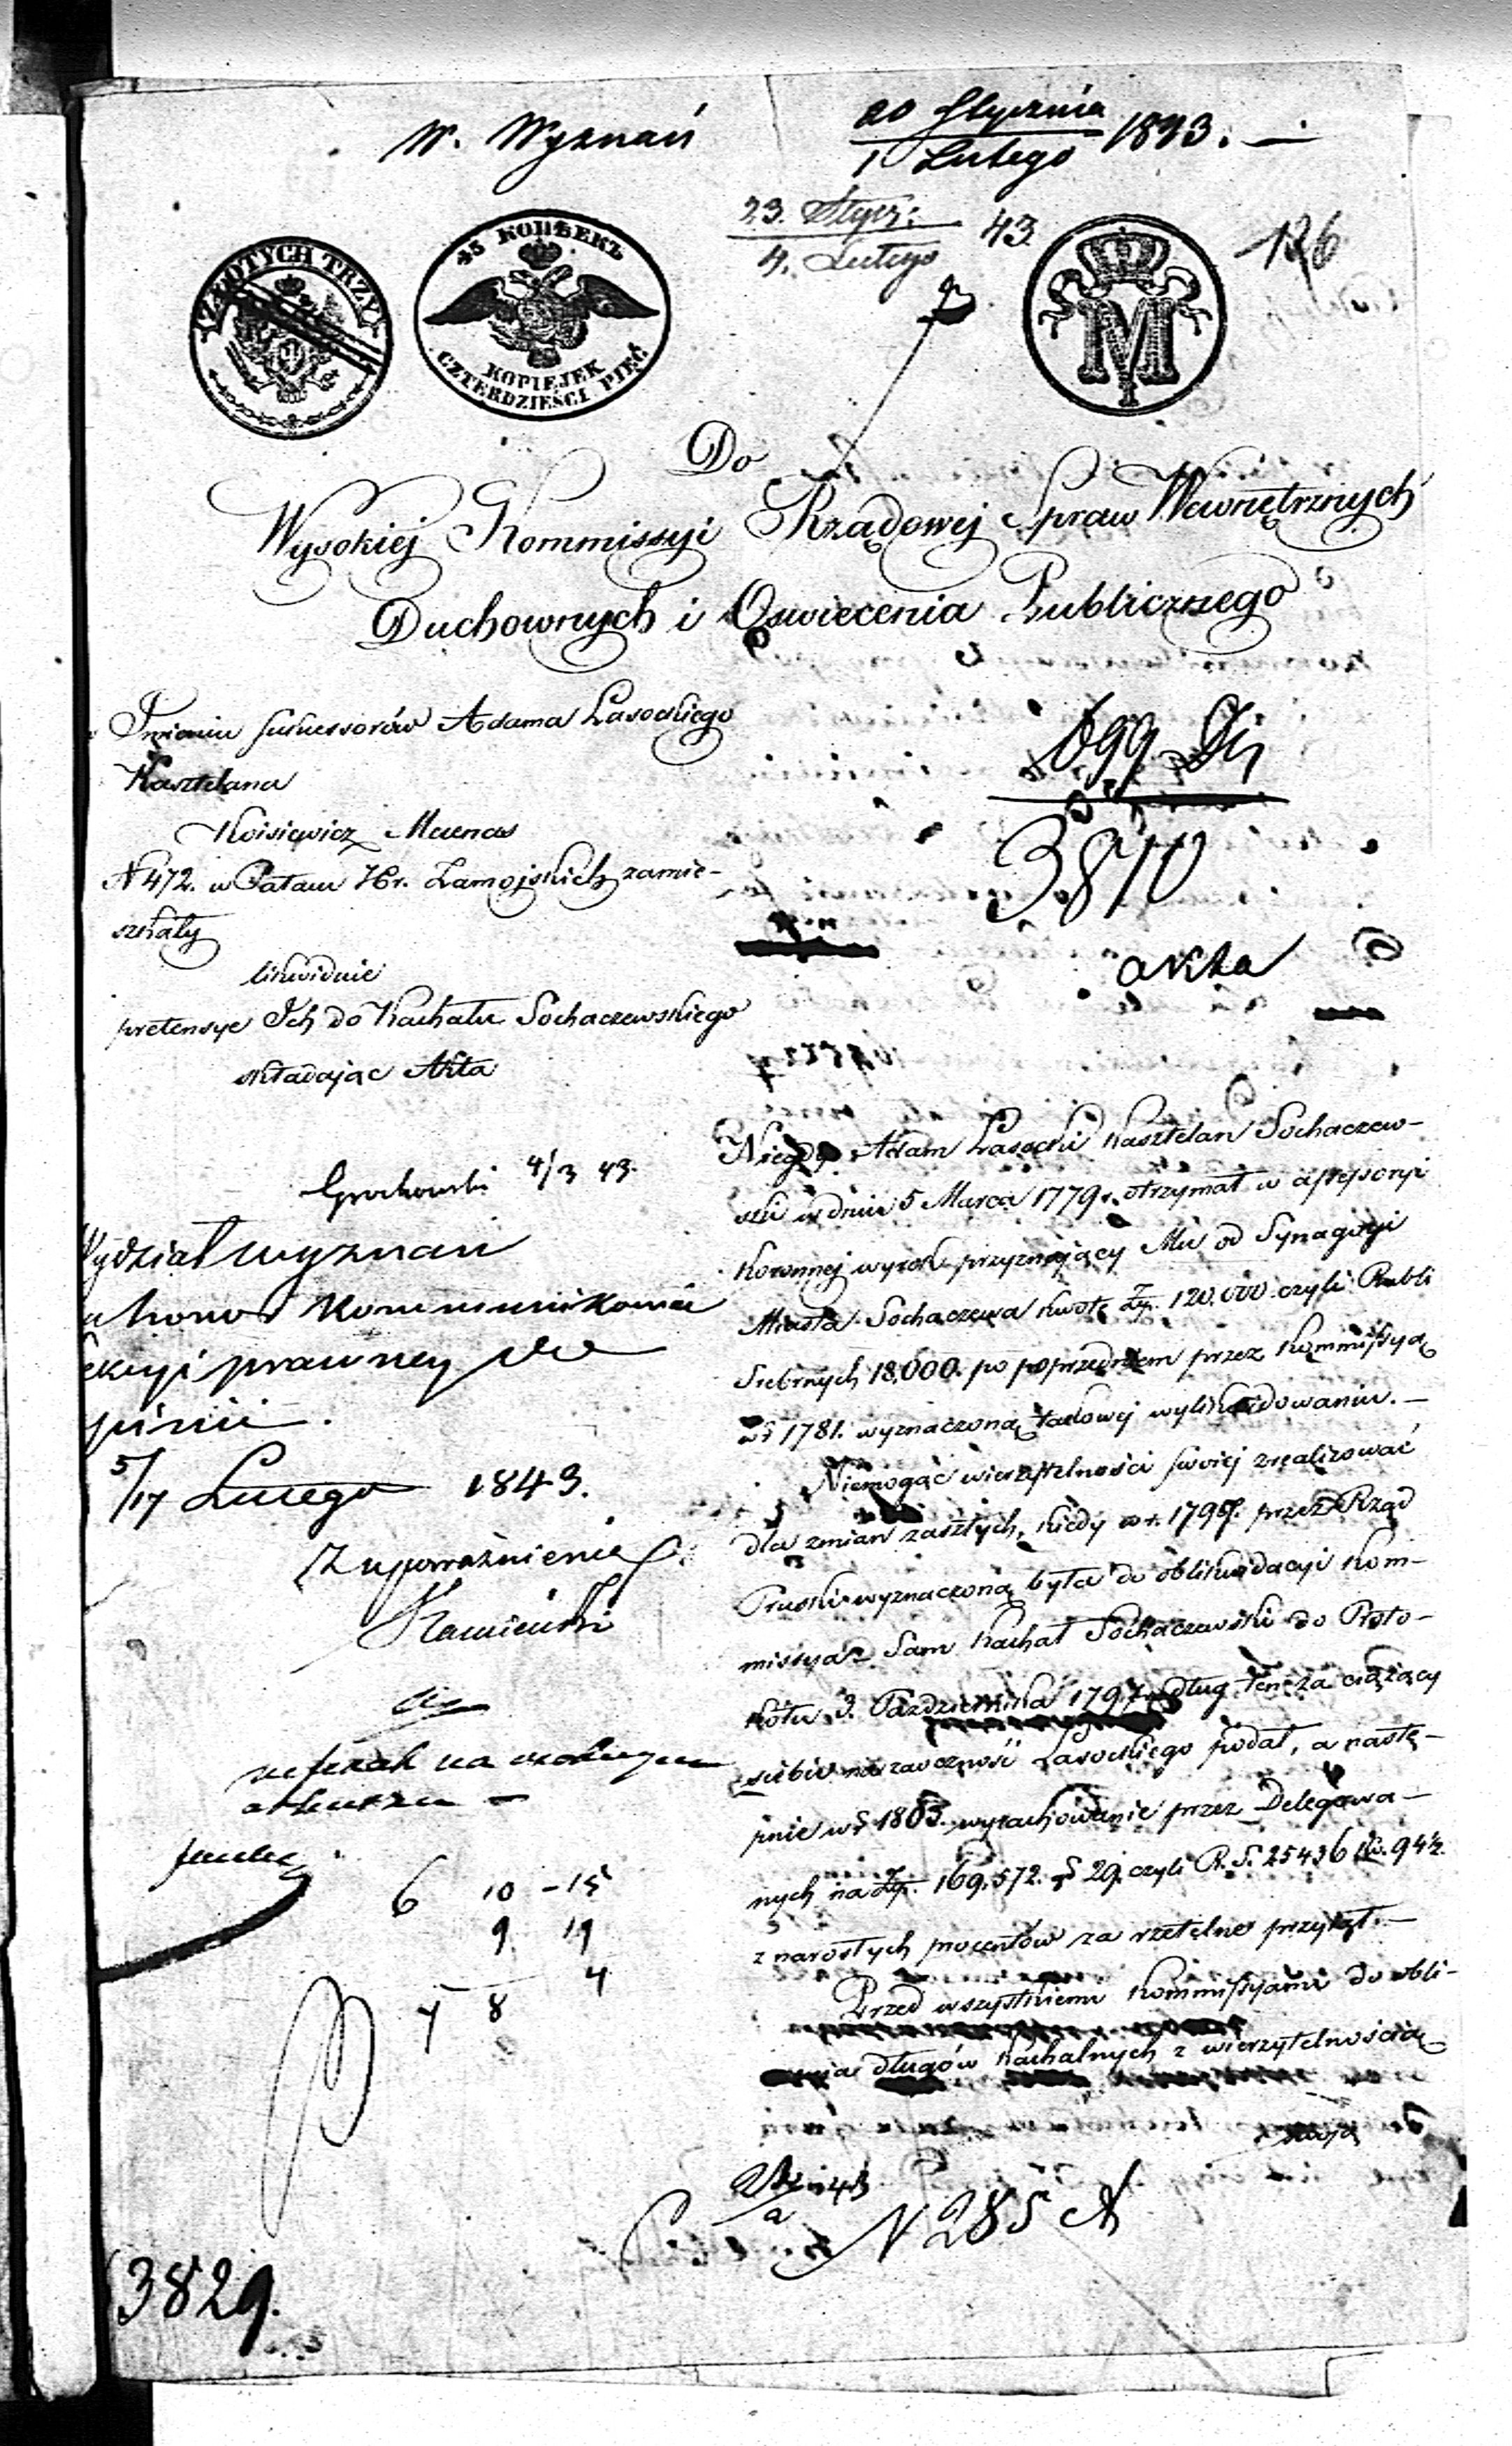 W. Wyznań
20 Stycznia
1 Lutego 1843. —
23. Stycz:
4. Lutego 43
136
ZŁOTYCH TRZY
45 КОПѢЕКЪ
KOPIEJEK
CZTERDZIEŚCI PIĘĆ
M
Do
Wysokiej Kommissyi Rządowej Spraw Wewnętrznych
Duchownych i Oswiecenia Publicznego
Imieniu sukcessorów Adama Lasockiego
Kasztelana
Koisiewicz Mecenas
N 472. w Pałacu Hr. Zamojskich zamie-
szkały
likwiduie
pretensye Ich do Kachału Sochaczewskiego
składając Akta
699
3810
akta
Grochowski 4/3 43.
Wydział wyznań
kommunikować
prawney do
opinii.
5/17 Lutego 1843.
Z upoważnienia
Kamieński
na osobnym
arkuszu —
6 10 – 15
9 19
4
7 8
3829.
Niegdy Adam Lasocki Kasztelan Sochaczew-
ski w dniu 5 Marca 1779 r. otrzymał w assessoryi
Koronnej wyrok przyznający Mu od Synagogi
Miasta Sochaczewa kwotę Zp. 120,000 czyli Rubli
Srebrnych 18,000. po poprzedniem przez Kommissyą
w r. 1781. wyznaczoną takowej wylikwidowaniu. —
Niemogąc wierzytelności swoiej zrealizować
dla zmian zaszłych, kiedy w r. 1797. przez Rząd
Pruski wyznaczoną była do oblikwidacyi Kom-
missya Sam Kachał Sochaczewski do Proto-
kółu d. Października 1797 dług ten za ciążący
siebie na zaoczność Lasockiego podał, a nastę-
pnie w r. 1803. wyrachowanie przez Delegowa-
nych na Zp. 169,572. gr 29. czyli R. S. 25436 k. 94½.
z narosłych procentów za rzetelne przyjął. —
Przed wszystkiemi Kommissyami do obli-
długów Kachalnych z wierzytelnością
swoją
N 285 A